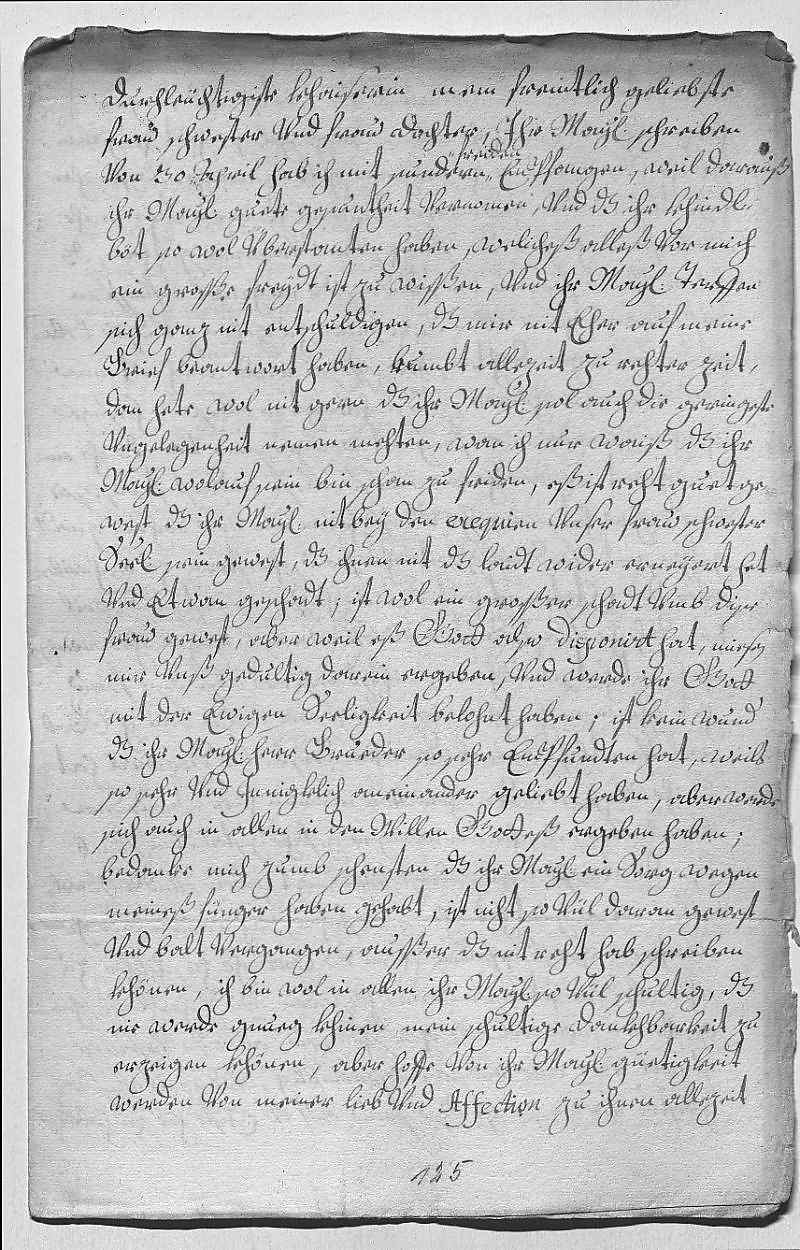 Durchleuchtigiste khaiserin mein freintlich geliebste
frau schwester Und frau dochter, Ihr Mayl. schreiben
Von 30 April hab ich mit sundern freiden Empfangen, weil darauß
ihr Mayl. guete gesuntheit Vernomen, Und dz ihr khindl.
böt so wol Überstanten haben, welicheß alleß Vor mich
ein grosße freydt ist zu wisßen, Und ihr Mayl. Terffen
sich ganz nit entschuldigen, dz mir nit Eher auf meine
Brief beantwort haben, kumbt allezeit zu rehter zeit,
dan hete wol nit gern dz ihr Mayl. sol auch die geringste
Ungelegenheit nemen mehten, wan ich nur waiß dz ihr
Mayl. wolauf sein bin schon zu friden, eß ist reht guet ge
west dz ihr Mayl. nit bey den exequien Unser frau schwester
Seel. sein gewest, dz ihnen nit dz laidt wider erneyert het
Und Etwan geschadt; ist wol ein grosßer schadt Umb dise
frau gewest, aber weil eß Gott also disponirt hat, miesen
mir Unß gedultig darein ergeben, Und werde ihr Gott
mit der Ewigen Seeligkeit belohnt haben; ist kein wund
dz ihr Mayl. herr Brueder so sehr Empfundten hat, weils
so sehr Und Innigklich aneinander geliebt haben, aber werde
sich auch in allen in den Willen Gotteß ergeben haben;
bedanke mich zumb schensten dz ihr Mayl. ein Sorg wegen
meineß finger haben gehabt, ist niht so Vül daran gewest
Und balt Vergangen, ausßer dz nit reht hab schreiben
khönen, ich bin wol in allen ihr Mayl. so Vül schultig, dz
nie werde gnueg khinen mein schultige dankhbarkeit zu
erzeigen khönen, aber hoffe Von ihr Mayl. güetigkeit
werden Von meiner lieb Und Affection zu ihnen allezeit
125